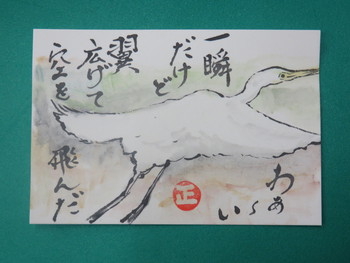 一瞬
だけど
翼
広げて
空を飛んだ
わぁ〜い
正